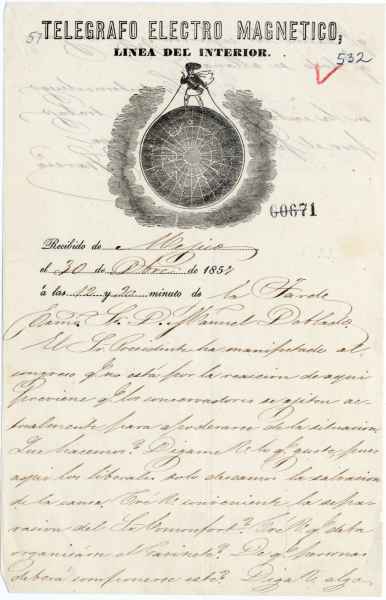 51
TELEGRAFO ELECTRO MAGNETICO;
LINEA DEL INTERIOR.
532
60671
Recibido de Mejico
el 30 de Dbre de 1857
á las 12 y 20 minuto de la Tarde
Sr. D. Manuel Doblado
El Sr. Presidente ha manifestado al
congreso q. no está por la reaccion de aqui
proviene q. los conservadores se agiten ac-
tualmente para apoderarse de la situacion
Que hacemos? Digame V. lo q. guste, pues
aqui los liberales solo deseamos la salvacion
de la causa. Cré V. conveniente la sepa-
racion del Sr. Comonfort? Cré V. q. deba
organizarse el Gavinete? De q. personas
deberá componerse este? Diga V. algo